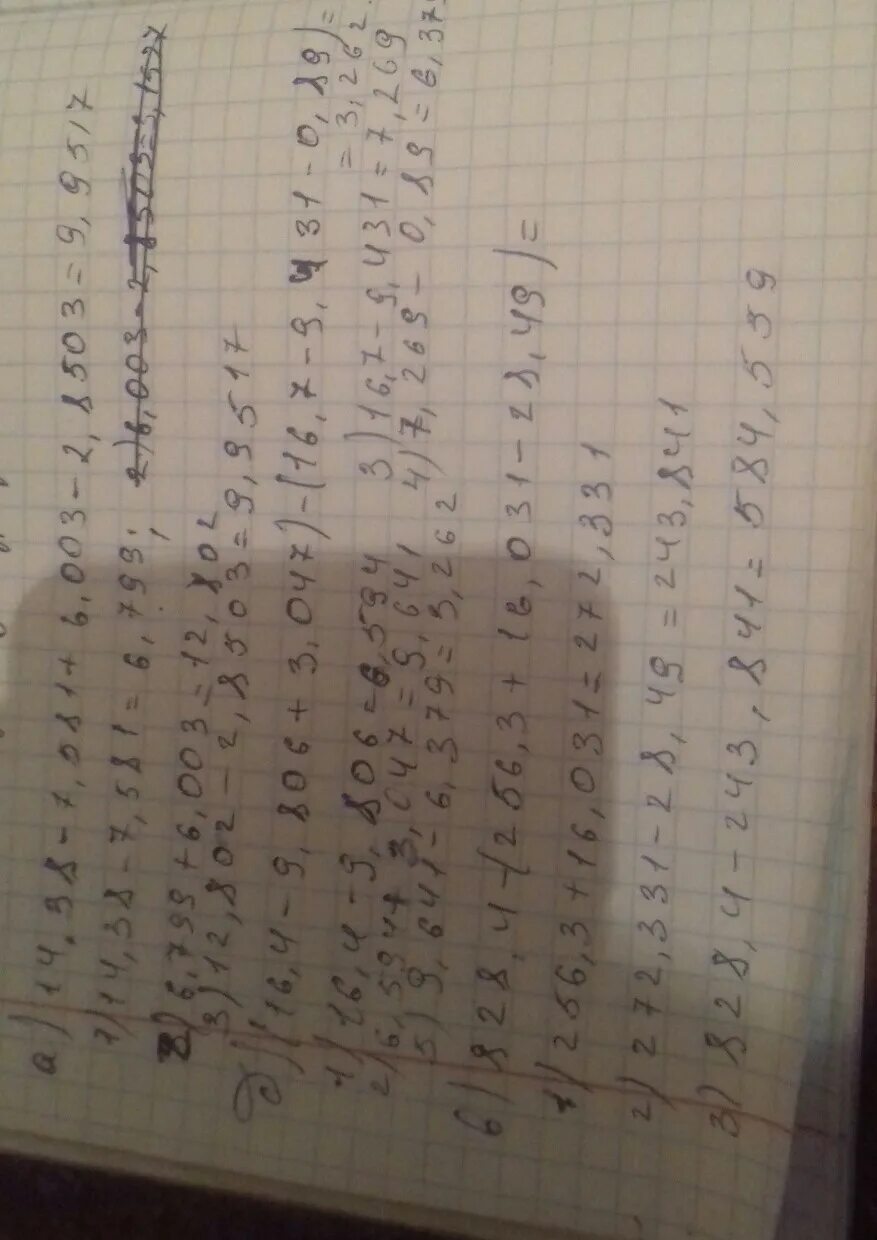 а) 14,38-7,581+6,003-2,8503=9,9517
1) 14,38-7,581=6,799; 2) 6,003-2,8503=3,1527
2) 6,799+6,003=12,802
3) 12,802-2,8503=9,9517
б) (16,4-9,806+3,047)-(16,7-9,431-0,89)=
=3,262.
1) 16,4-9,806=6,594
2) 6,594+3,047=9,641
3) 16,7-9,431=7,269
4) 7,269-0,89=6,379
5) 9,641-6,379=3,262
в) 828,4-(256,3+16,031-28,49)=
1) 256,3+16,031=272,331
2) 272,331-28,49=243,841
3) 828,4-243,841=584,559